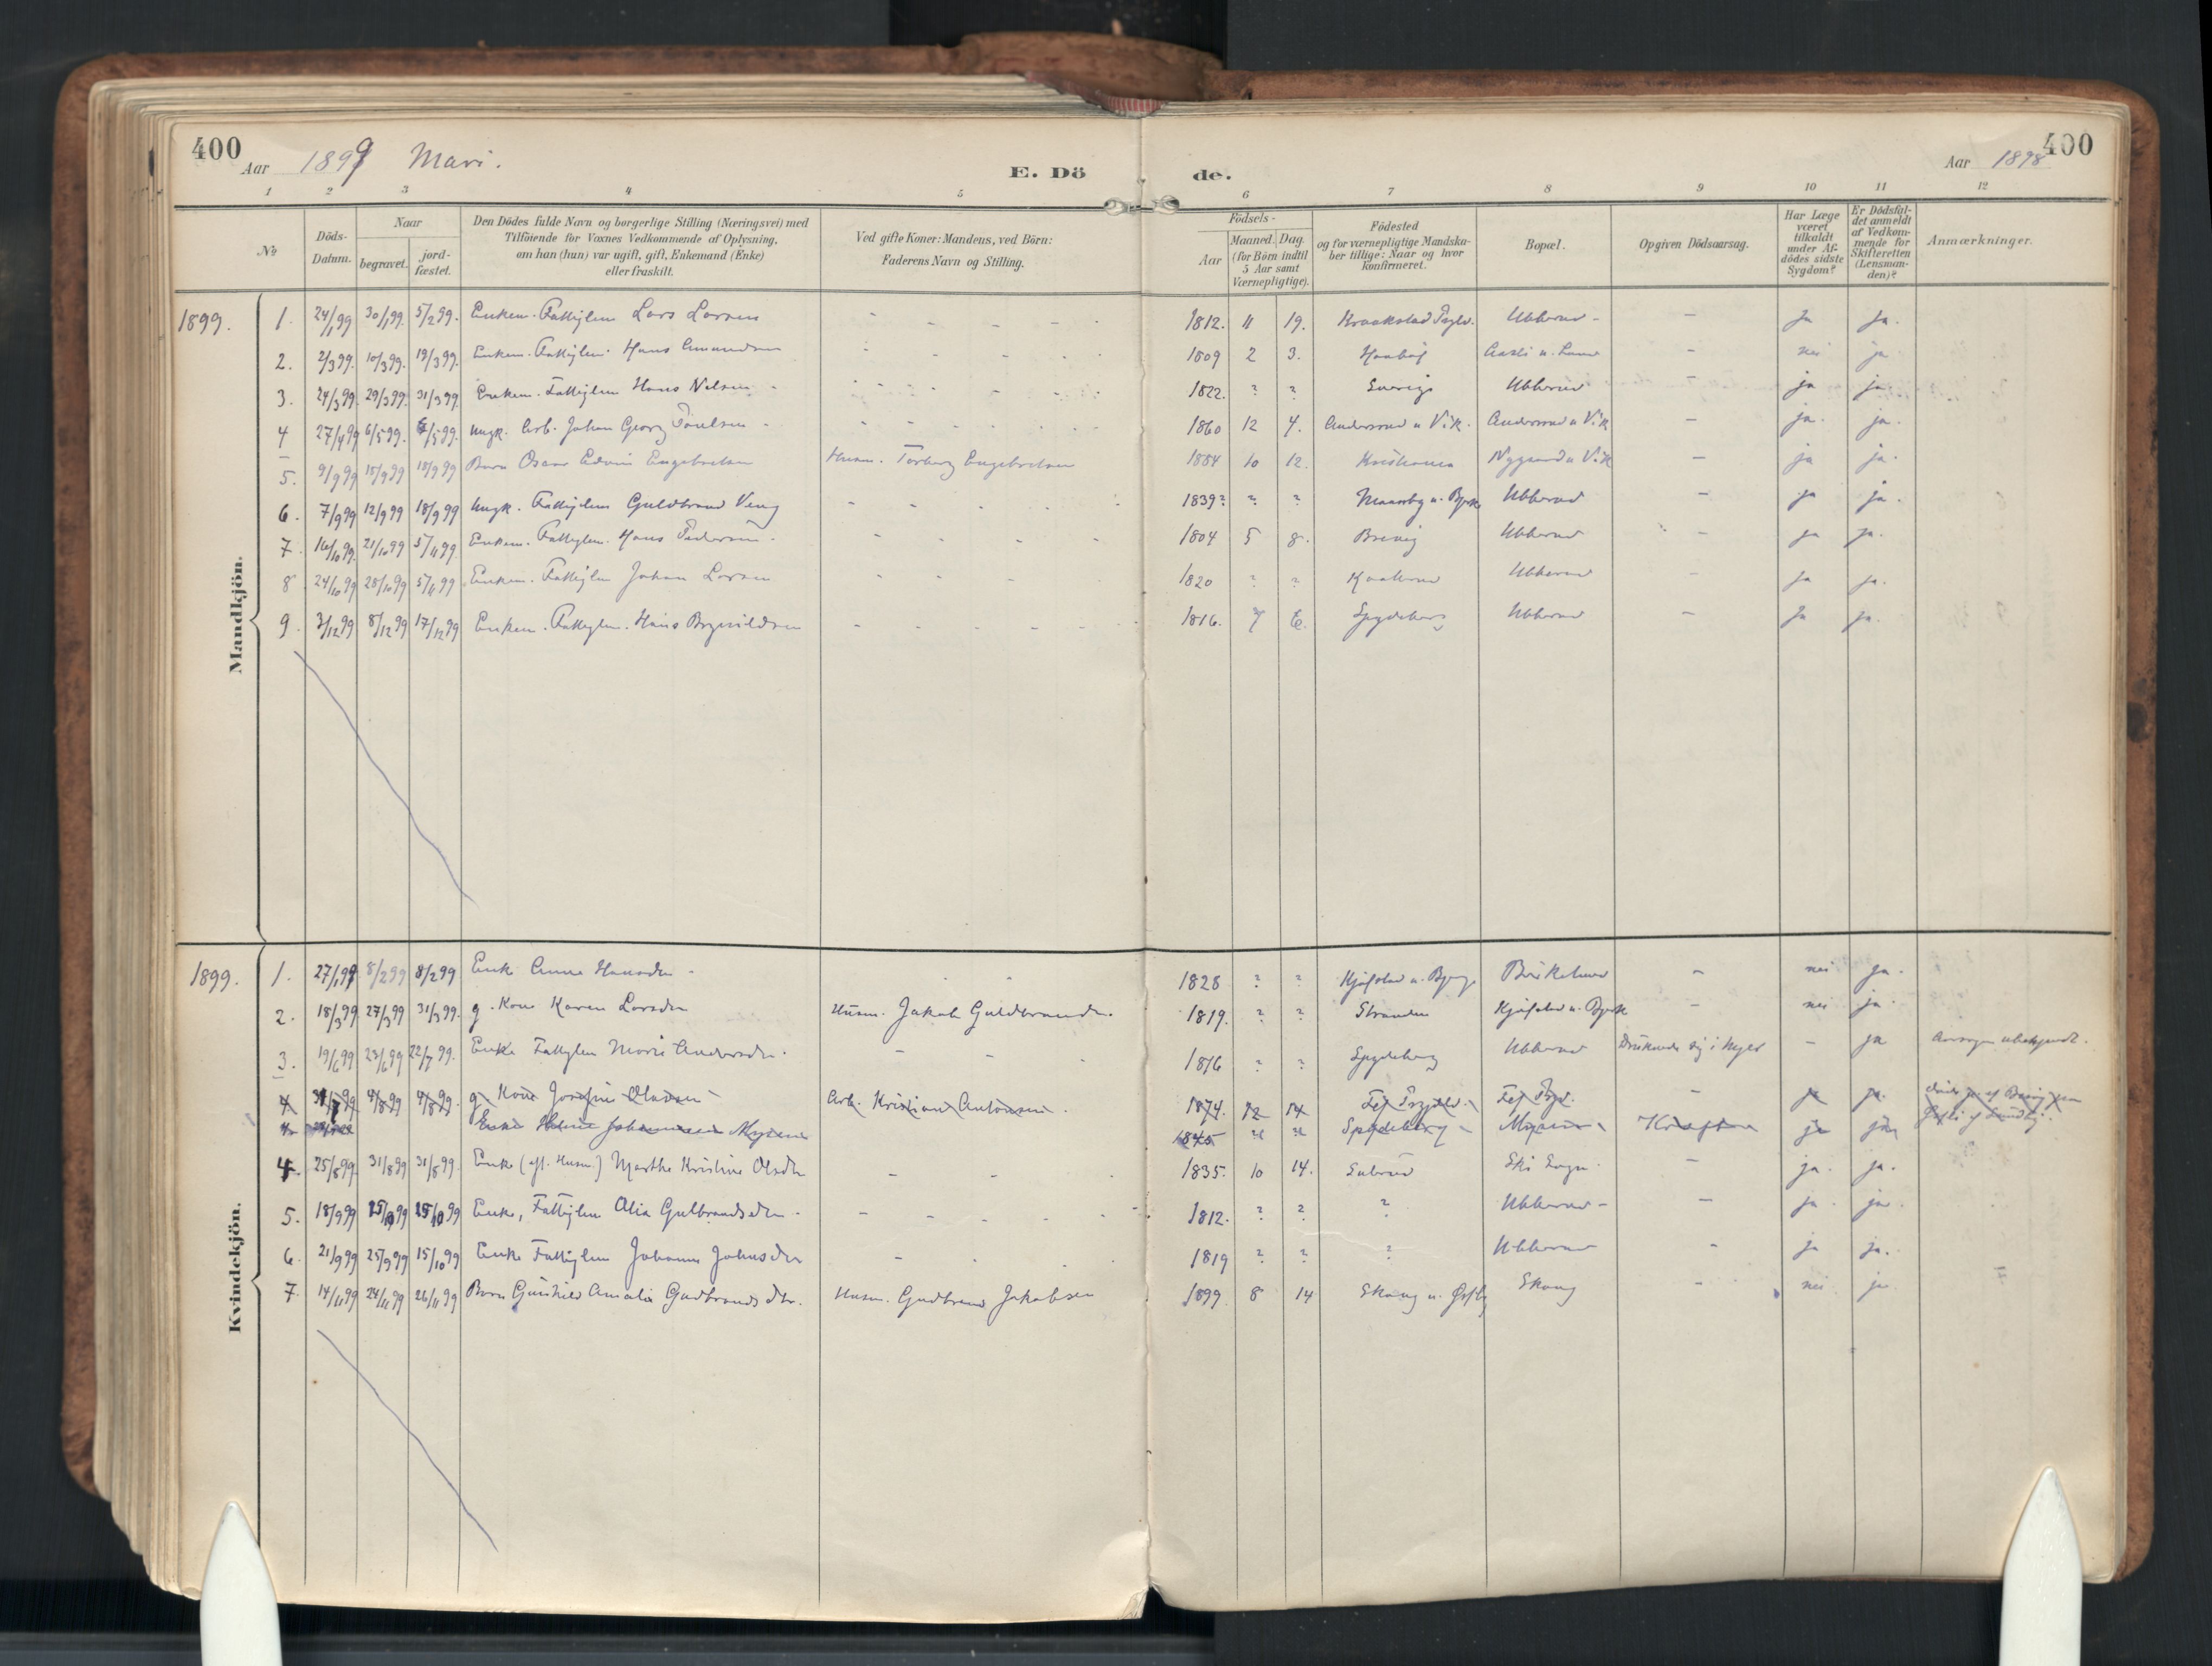 400 Aar 1899 Mari. E. Dö de. Aar 1898 400
1 2 3 4 5 6 7 8 9 10 11 12
No
Döds-Datum.
Naar begravet. jord-fæstet.
Den Dödes fulde Navn og borgerlige Stilling (Næringsvei) med Tilföiende for Voxnes Vedkommende af Oplysning, om han (hun) var ugift, gift, Enkemand (Enke) eller fraskilt.
Ved gifte Koner: Mandens, ved Börn: Faderens Navn og Stilling.
Födsels- Aar Maaned. Dag. (for Börn indtil 5 Aar samt Værnepligtige).
Födested og for værnepligtige Mandska-ber tillige: Naar og hvor konfirmeret.
Bopæl.
Opgiven Dödsaarsag.
Har Læge været tilkaldt under Af-dödes sidste Sygdom?
Er Dödsfal-det anmeldt af Vedkom-mende for Skifteretten (Lensman-den)?
Anmærkninger.
Mandkjön.
1899. 1. 24/1 99 30/1 99. 5/2 99. Enkem. Fattiglem Lars Larsen - - - - - 1812. 11 19. Kraakstad Prgld. Ubberud - - ja ja.
2. 2/3 99. 10/3 99. 19/3 99. Enkem. Fattiglem. Hans Amundsen - - - - 1809 2 3. Haabøl - nei ja
3. 24/3 99. 29/3 99. 31/3 99. Enkem. Fattiglem Hans Nilsen - - - - 1822. ? ? Sverige Ubberud - ja ja.
4 27/4 99 6/5 99. 6/5 99. Ungk. Arb. Johan Georg Poulsen - - - - 1860 12 4. Andersrud u Vik. Andersrud u Vik - ja. ja.
5. 9/9 99 15/9 99 18/9 99 Barn Oscar Edvin Engebretsen Husm. Torberg Engebretsen 1884 10 12. Kristiania Nygaard u Vik - ja ja.
6. 7/9 99 12/9 99 18/9 99 Ungk. Fattiglem Guldbrand Veng - - - - 1839? ? ? Ubberud - ja ja.
7. 16/10 99. 21/10 99 5/11 99. Enkem. Fattiglem. Hans Pedersen. - - - - 1804 5 8. Brevig Ubberud - ja ja.
8 24/10 99 28/10 99 5/11 99 Enkem. Fattiglem Johan Larsen - - - 1820 ? ? Ubberud - ja ja.
9. 3/12 99 8/12 99 17/12 99 Enkem. Fattiglem. Hans Brynildsen - - - - - 1816. 7 6. Spydeberg Ubberud - ja ja.
Kvindekjön.
1899. 1. 27/1 99 8/2 99 8/2 99 Enke Anne Hansdtr - - - 1828 ? ? Birkelund - nei ja.
2. 18/3 99 27/3 99 31/3 99. g. Kone Karen Larsdtr Husm. Jakob Guldbrands. 1819. ? ? Stranden - nei ja.
3. 19/6 99 23/6 99 22/7 99. Enke Fattiglem Marie Andersdtr. - - 1816 ? ? Spydeberg Ubberud Druknede sig i - ja Aarsagen ubekjendt.
4 4/8 99 4/8 99. g. Kone Josefine Olausen - Arb. Kristian Antonsen. 1874. 12 14 - ja ja.
4 Enke Helene Johannesen Mysen 1845 " " Spydeberg - Kræft ja ja
4. 25/8 99. 31/8 99 31/8 99 Enke (af. Husm.) Marthe Kristine Olsdtr - - 1835. 10 14. Ski Sogn - ja. ja.
5. 18/9 99 25/9 99 15/10 99 Enke, Fattiglem Olia Gulbrandsdtr - - - - 1812. ? ? ? Ubberud - - ja. ja.
6. 21/9 99 25/9 99 15/10 99 Enke Fattiglem Johanne Johnsdtr - 1819 ? ? ? Ubberud - ja ja.
7. 14/11 99 24/11 99 26/11 99 Barn Gunhild Amalie Gudbrandsdtr. Husm. Gudbrand Jakobsen 1899 8 14 Skaug u. Østby Skaug - nei ja